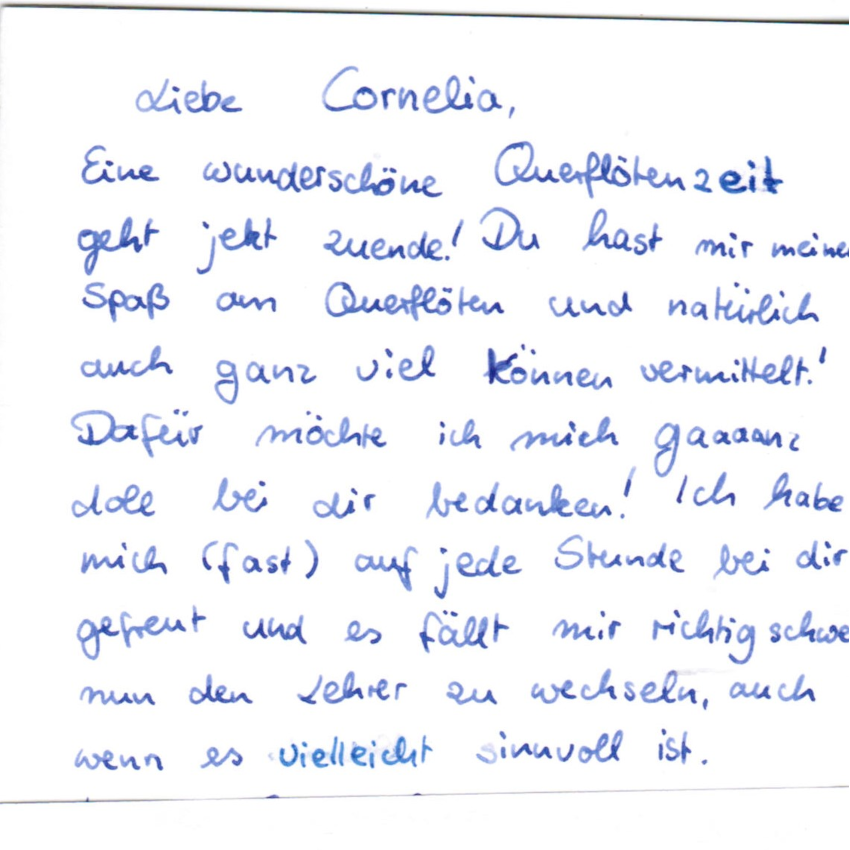 Liebe Cornelia,
Eine wunderschöne Querflötenzeit
geht jetzt zuende! Du hast mir meinen
Spaß am Querflöten und natürlich
auch ganz viel Können vermittelt!
Dafür möchte ich mich gaaaanz
dolle bei dir bedanken! Ich habe
mich (fast) auf jede Stunde bei dir
gefreut und es fällt mir richtig schwe
nun den Lehrer zu wechseln, auch
wenn es vielleicht sinnvoll ist.